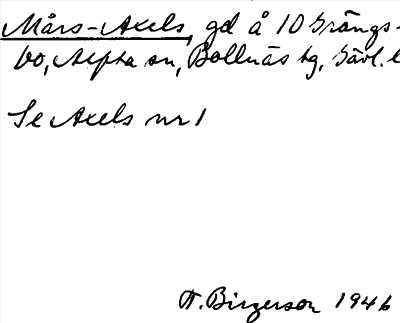 Mårs-Axels, gd å 10 Grängs-
bo, Alfta sn, Bollnäs tg, Gävl. l
Se Axels nr 1
H. Birgerson 1946